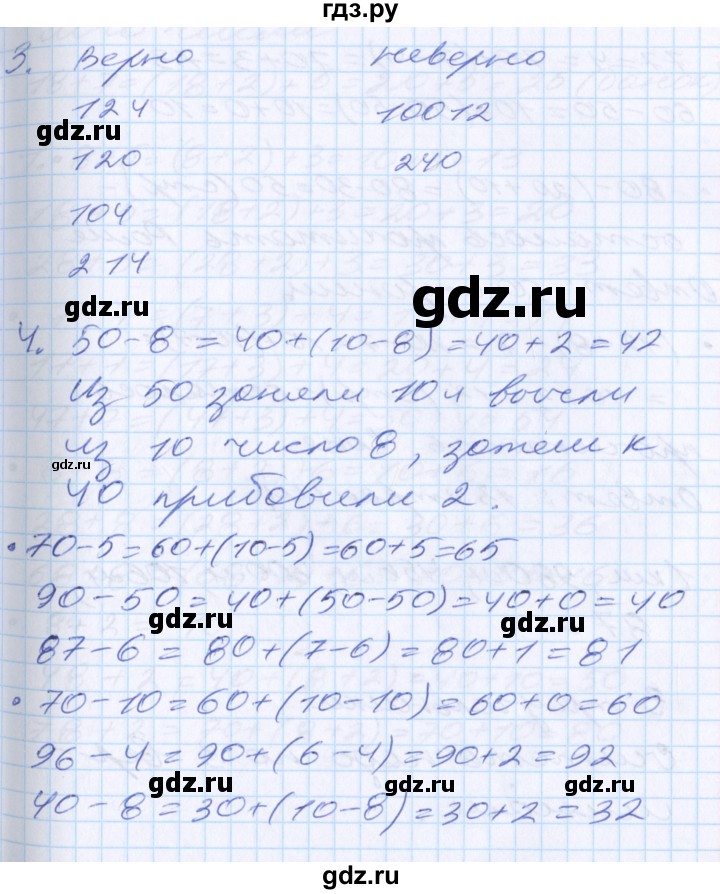 гдз.ру
3. Верно Неверно
124 10012
gdz.ru
120 240
104
214
gdz.ru
gdz.ru
4. 50-8 = 40+(10-8)=40+2=42
Из 50 заняли 10 и вычли
из 10 число 8, затем к
gdz.ru
40 прибавили 2.
• 70-5=60+(10-5)=60+5=65
90-50=40+(50-50)=40+0=40
gdz.ru gdz.ru
87-6 = 80+(7-6)=80+1=81
• 70-10=60+(10-10)=60+0=60
96-4=90+(6-4)=90+2=92
gdz.ru gdz.ru gdz.ru
40-8=30+(10-8)=30+2=32
gdz.ru